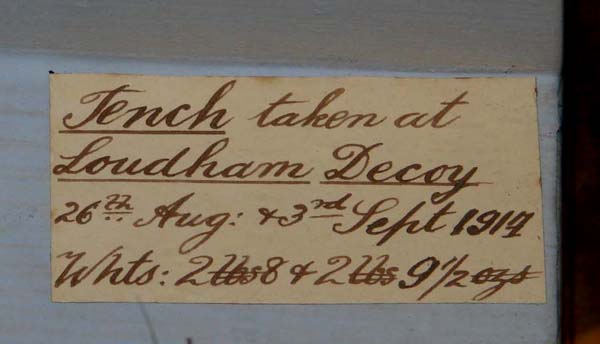 Tench taken at
Loudham Decoy
26th Aug: & 3rd Sept 1914
Whts: 2 lbs 8 & 2 lbs 9 1/2 ozs